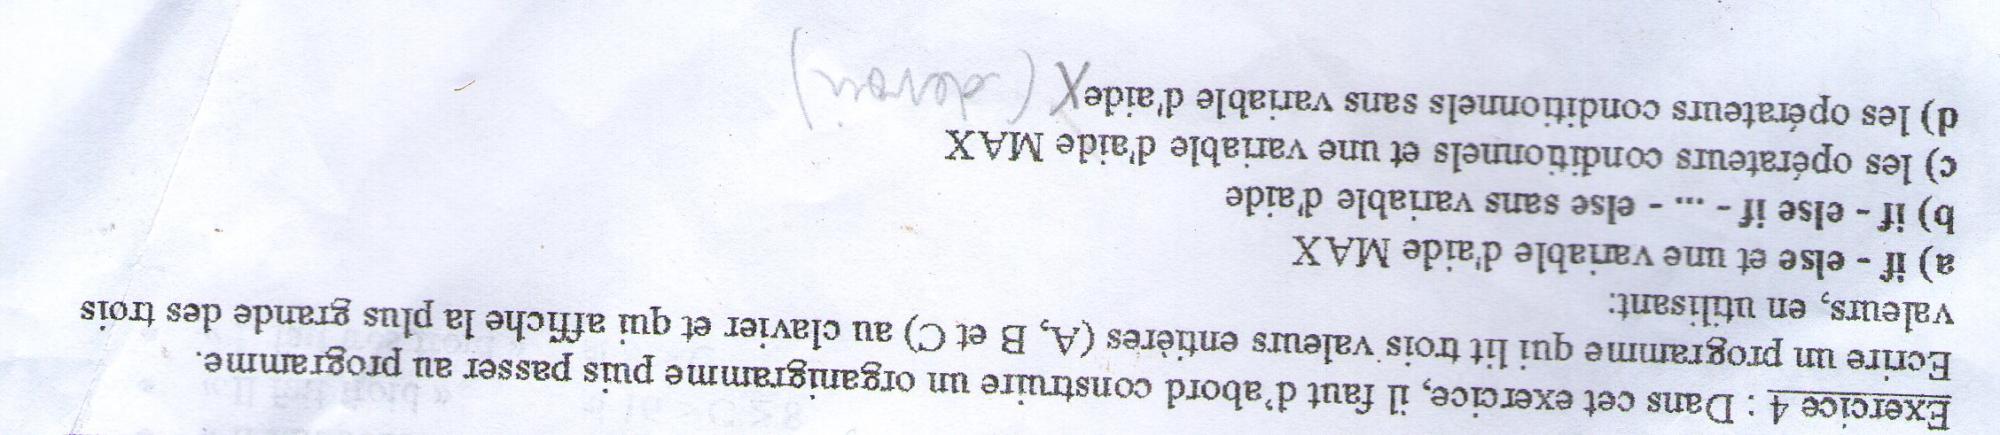 Exercice 4 : Dans cet exercice, il faut d'abord construire un organigramme puis passer au programme.
Ecrire un programme qui lit trois valeurs entières (A, B et C) au clavier et qui affiche la plus grande des trois
valeurs, en utilisant:
a) if - else et une variable d'aide MAX
b) if - else if - ... - else sans variable d'aide
c) les opérateurs conditionnels et une variable d'aide MAX
d) les opérateurs conditionnels sans variable d'aide X (devoir)